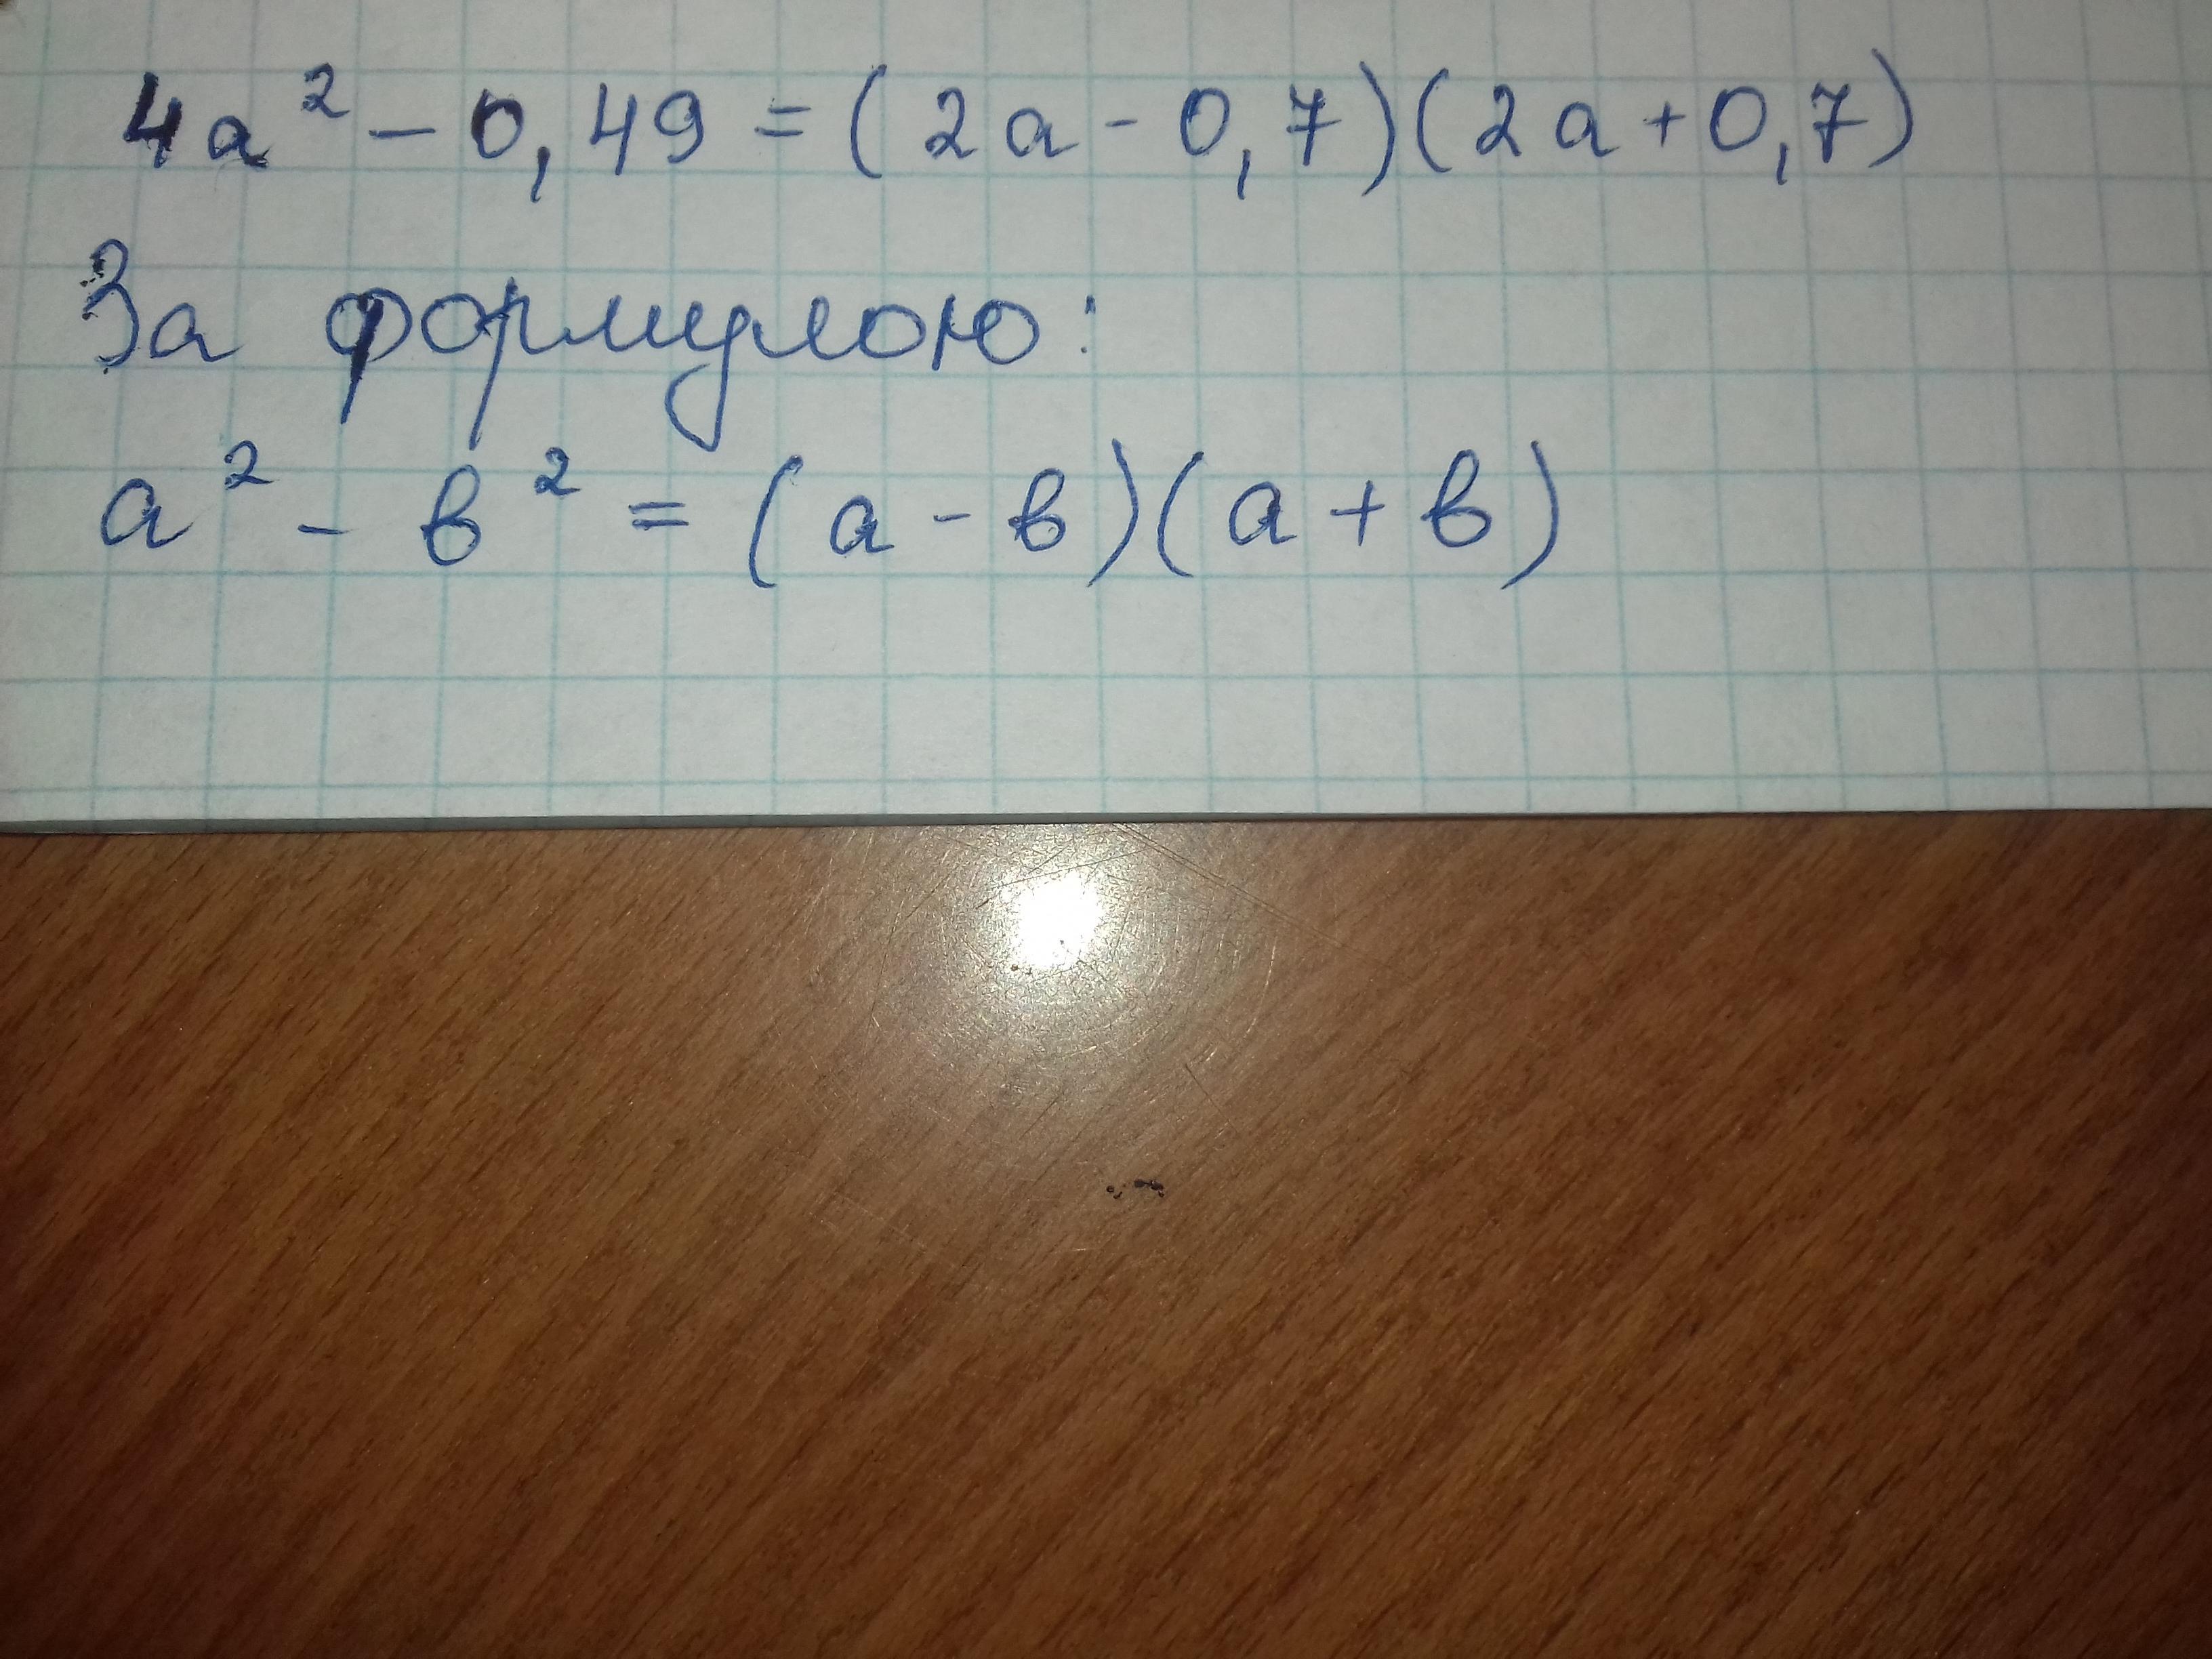 4a² - 0,49 = (2a - 0,7)(2a + 0,7)
За формулою:
a² - в² = (a - в)(a + в)